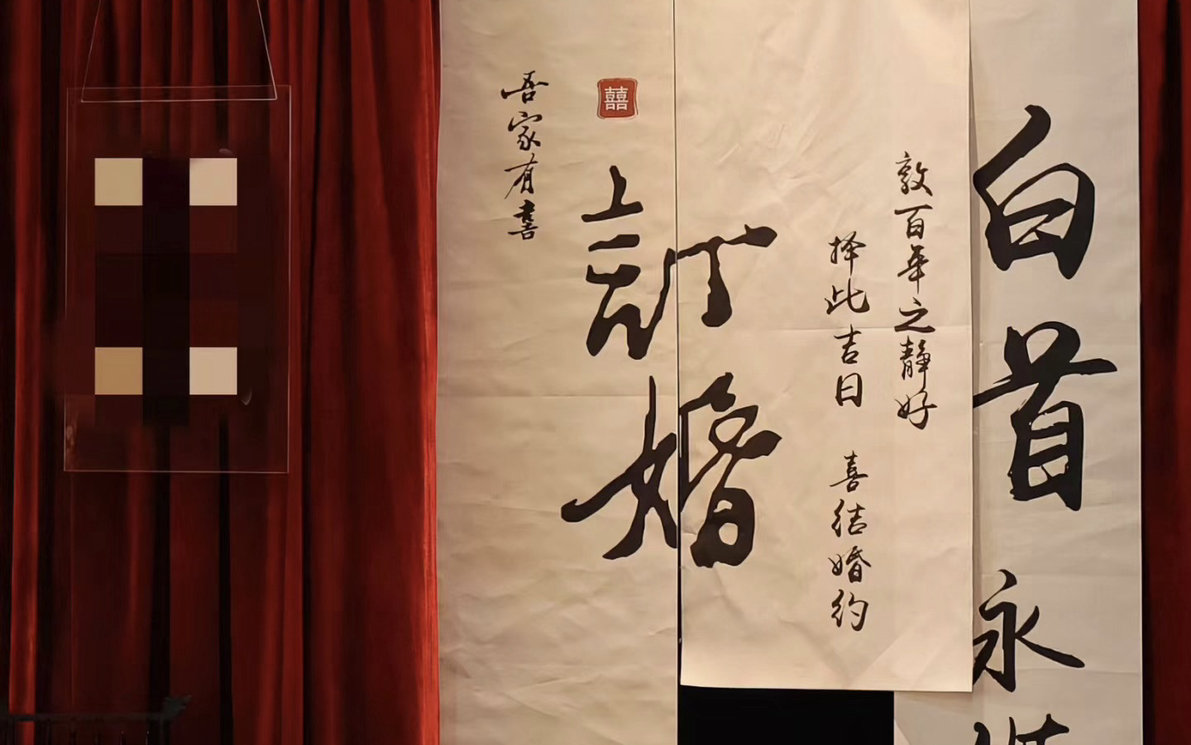 白首永
敦百年之静好
择此吉日 喜结婚约
訂婚
囍
吾家有喜